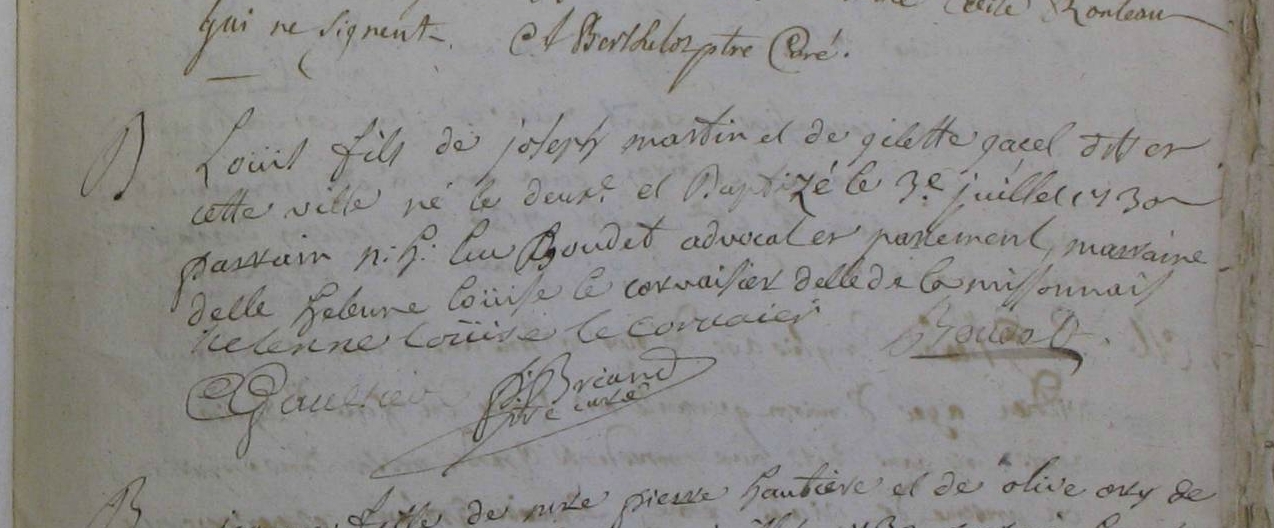 Cecile Rouleau
qui ne signent. Berthelot ptre Curé.
B Loüis fils de joseph martin et de gilette gacel
cette ville né le deux.e et Baptizé le 3.e juillet 1730
parrain n: h: luc Boudet advocat en parlement, marraine
delle helenne loüise le corvaisier delle de la missonnais
helenne loüise le corvaier Boudet.
Gaultier Briand
ptre curé
B fille de pierre hautiere et de olive ory de